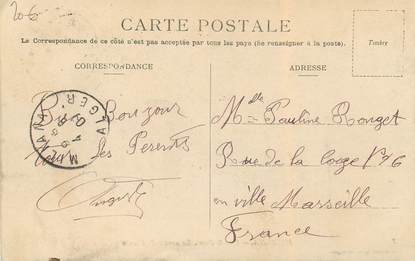 206
CARTE POSTALE
Le Correspondance de ce côté n'est pas acceptée par tous les pays (Se renseigner à la poste).
Timbre
CORRESPONDANCE
ADRESSE
Bonjour
les Parents
Auguste
Mlle Pauline Ronget
Rue de la loge N°6
en ville Marseille
France
ALGER